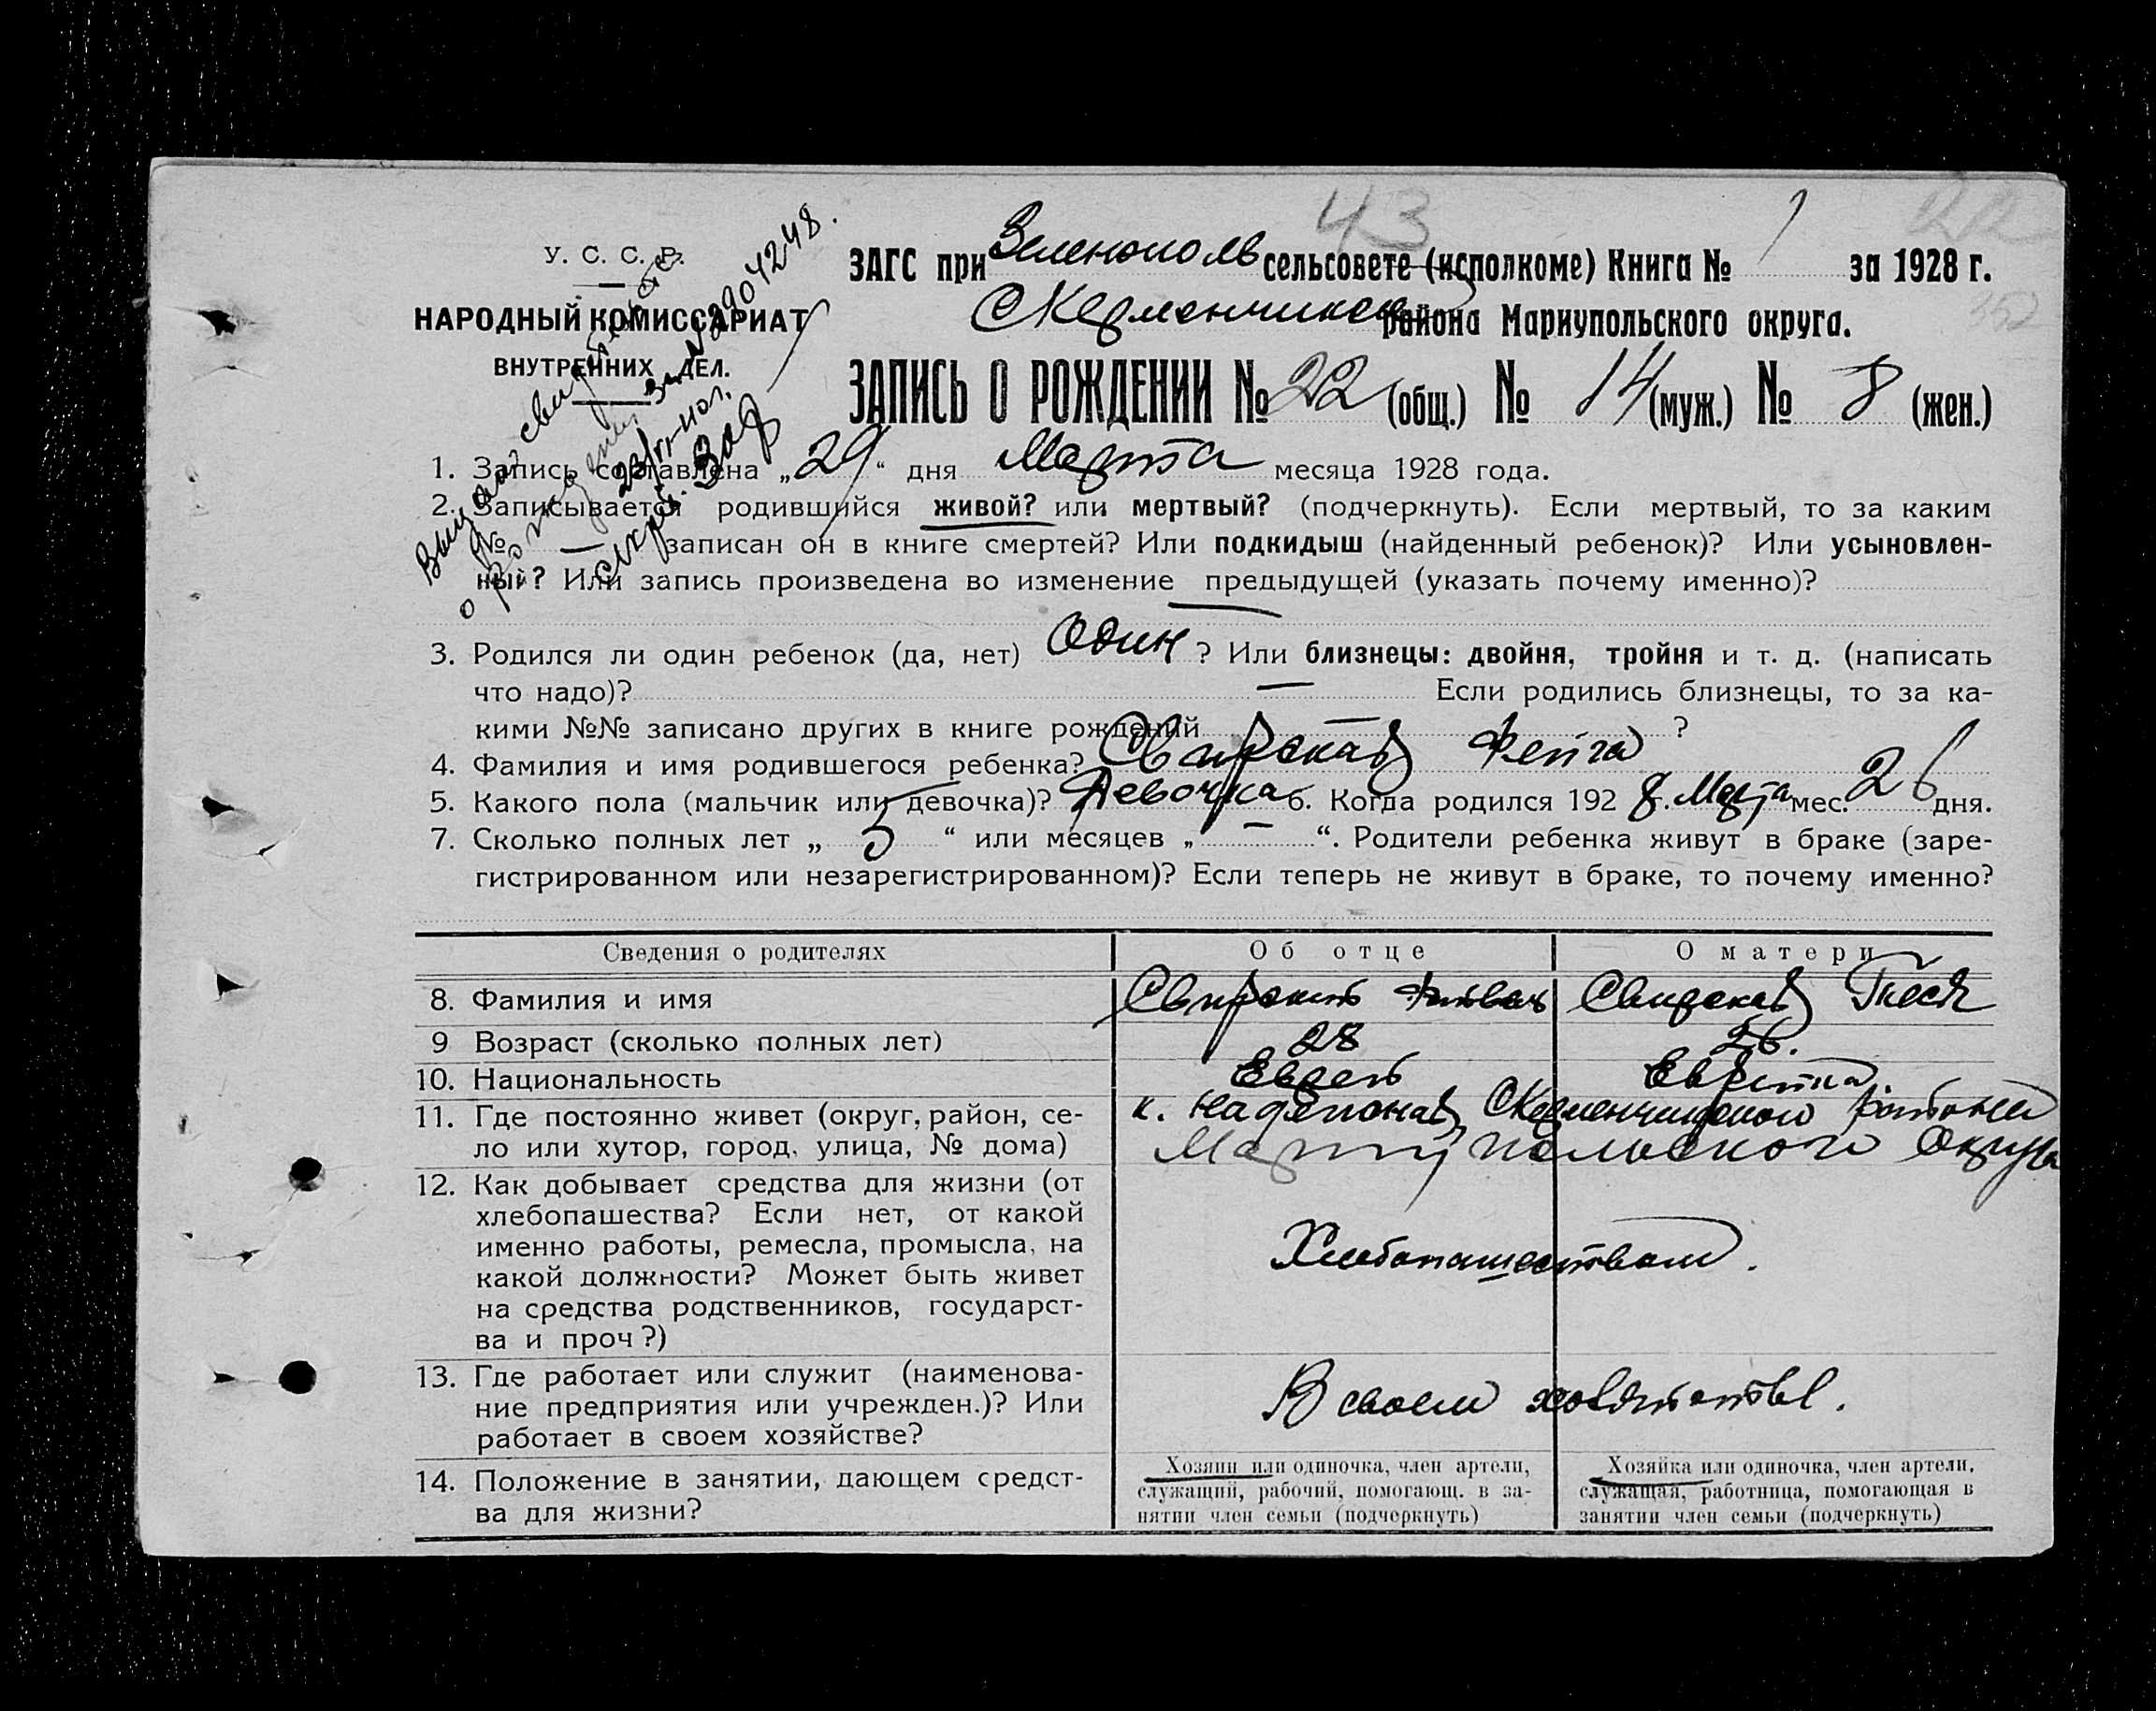 43
У. С. С. Р.
НАРОДНЫЙ КОМИССАРИАТ
ВНУТРЕННИХ ДЕЛ.
ЗАГС при Зеленополь сельсовете (исполкоме) Книга № 1 за 1928 г.
352
района Мариупольского округа.
ЗАПИСЬ О РОЖДЕНИИ № 22 (общ.) № 14 (муж.) № 8 (жен.)
1. Запись составлена „29“ дня Марта месяца 1928 года.
2. Записывается родившийся живой? или мертвый? (подчеркнуть). Если мертвый, то за каким
№ — записан он в книге смертей? Или подкидыш (найденный ребенок)? Или усыновлен-
ный? Или запись произведена во изменение предыдущей (указать почему именно)?
—
3. Родился ли один ребенок (да, нет) Один? Или близнецы: двойня, тройня и т. д. (написать
что надо)? — Если родились близнецы, то за ка-
кими №№ записано других в книге рождений — ?
4. Фамилия и имя родившегося ребенка? Свирская Фейга
5. Какого пола (мальчик или девочка)? Девочка 6. Когда родился 1928 г. Марта мес. 26 дня.
7. Сколько полных лет „5“ или месяцев „—“. Родители ребенка живут в браке (заре-
гистрированном или незарегистрированном)? Если теперь не живут в браке, то почему именно?
Сведения о родителях Об отце О матери
8. Фамилия и имя Свирский Свирская
9 Возраст (сколько полных лет) 28 26.
10. Национальность Еврей Еврейка.
11. Где постоянно живет (округ, район, се- к. Надежная, Скерменчицкого района
ло или хутор, город, улица, № дома) Мариупольского Округа
12. Как добывает средства для жизни (от
хлебопашества? Если нет, от какой
именно работы, ремесла, промысла, на Хлебопашеством.
какой должности? Может быть живет
на средства родственников, государст-
ва и проч?)
13. Где работает или служит (наименова-
ние предприятия или учрежден.)? Или В своем хозяйстве.
работает в своем хозяйстве?
14. Положение в занятии, дающем средст-
ва для жизни?
Хозяин или одиночка, член артели,
служащий, рабочий, помогающ. в за-
нятии член семьи (подчеркнуть)
Хозяйка или одиночка, член артели,
служащая, работница, помогающая в
занятии член семьи (подчеркнуть)